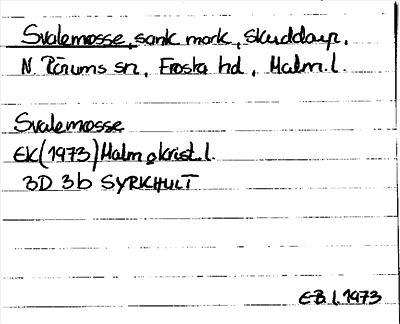 Svalemosse, sank mark, Skuddarp,
N. Rörums sn, Frosta hd, Malm. l.
Svalemosse
EK (1973) Malm o krist. l.
3D 3b SYRKHULT
E.B. l. 1973